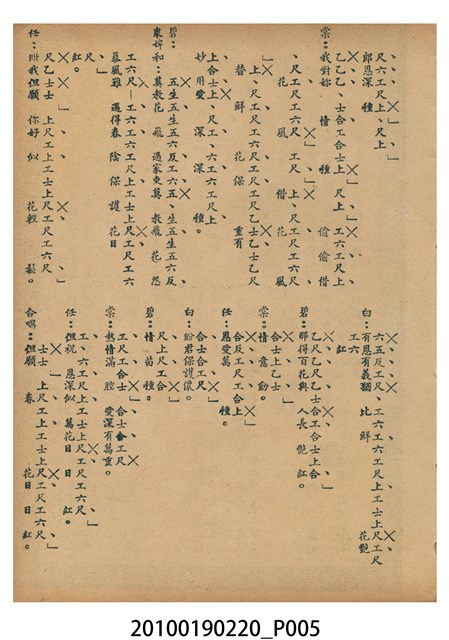 尺工六尺上、尺上
郎恩深 種。
乙乙乙、士合工合士上 尺上 工六工尺上
棠：我對妳 情 種 偷偷借
、尺工尺工六尺 工尺 上、尺工尺工六尺
花 風 借 花 風
上、工尺工六工尺工尺乙士乙士乙尺
替 鮮 花 保 重有
上合士上 尺工、六工六工尺上
妙 用愛 深 深 種。
五生五生五六反工六五、生五生五六反
碧：
衆婢和：莫教花 飛 過家更莫 教飛 花 怨
尺六尺—工六工六工尺上工士上尺工尺工六
尺
暮風難 遇得春 陰 保 護 花日
紅。
尺乙士士 上尺工上工士上尺工尺工六尺
任：呌我但願 你好 似 花輕 鬆。
六五反工尺、工六工六工尺上工士上尺工尺
工六
白：有恩有義猶 比 鮮 花艷
紅
乙尺乙尺乙士合工合士上合
碧：那得百花與 人長 艷 紅。
合士上乙士
棠：情 意 動。
合反工尺工合上
任：恩愛萬 種。
合士合工尺
白：盼君保護儂。
尺上尺工合
碧：情 苗 種。
工尺工合士 合士合工尺
棠：熱情滿 腔 愛深有萬重。
工、六工尺上工士上尺工尺工六尺
任：但祝 恩深似 萬花日 日 紅。
士士 上尺工上工士上尺工尺工六尺
合唱：但願 春 花日 日 紅。
20100190220_P005